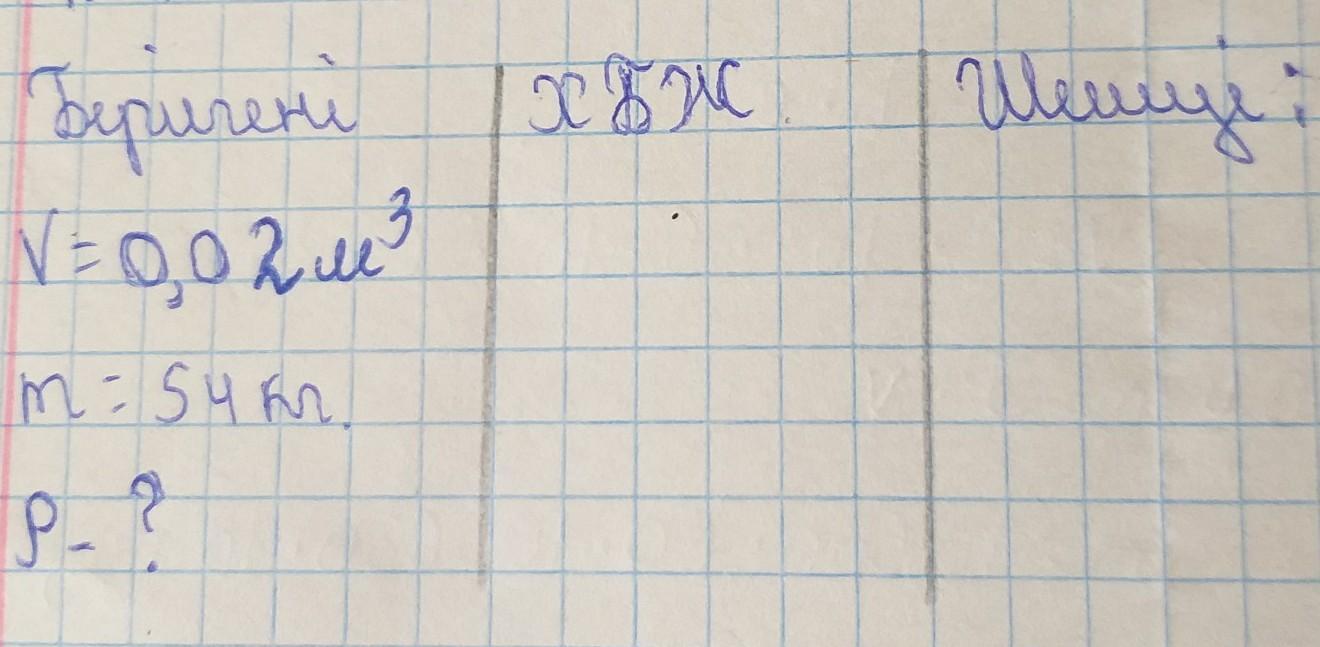 Берілгені хБЖ Шешуі:
V = 0,02 м³
m = 54 кг.
ρ - ?